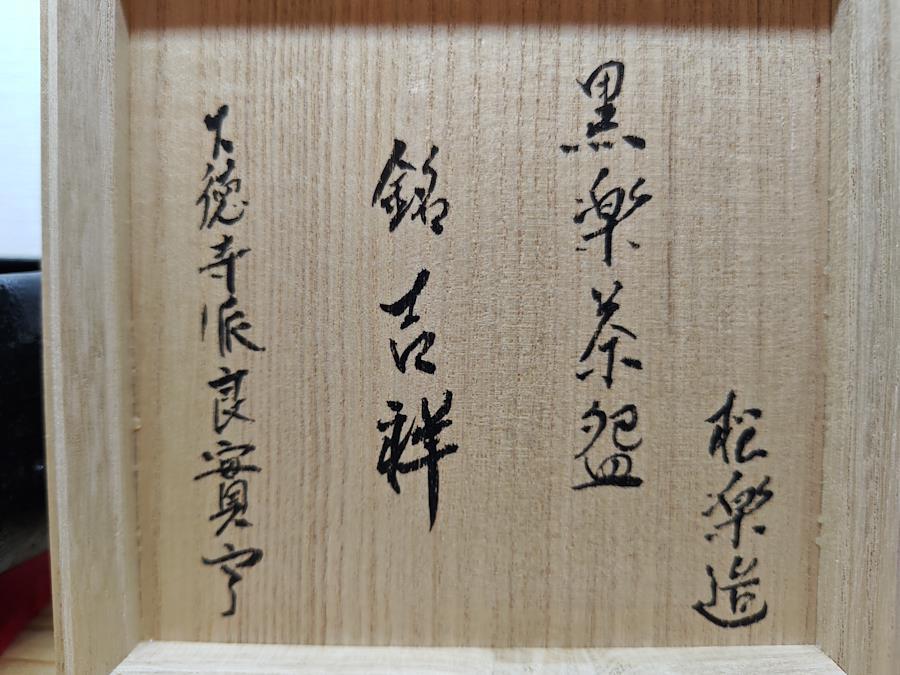 松楽造
黒楽茶盌
銘 吉祥
大徳寺派良